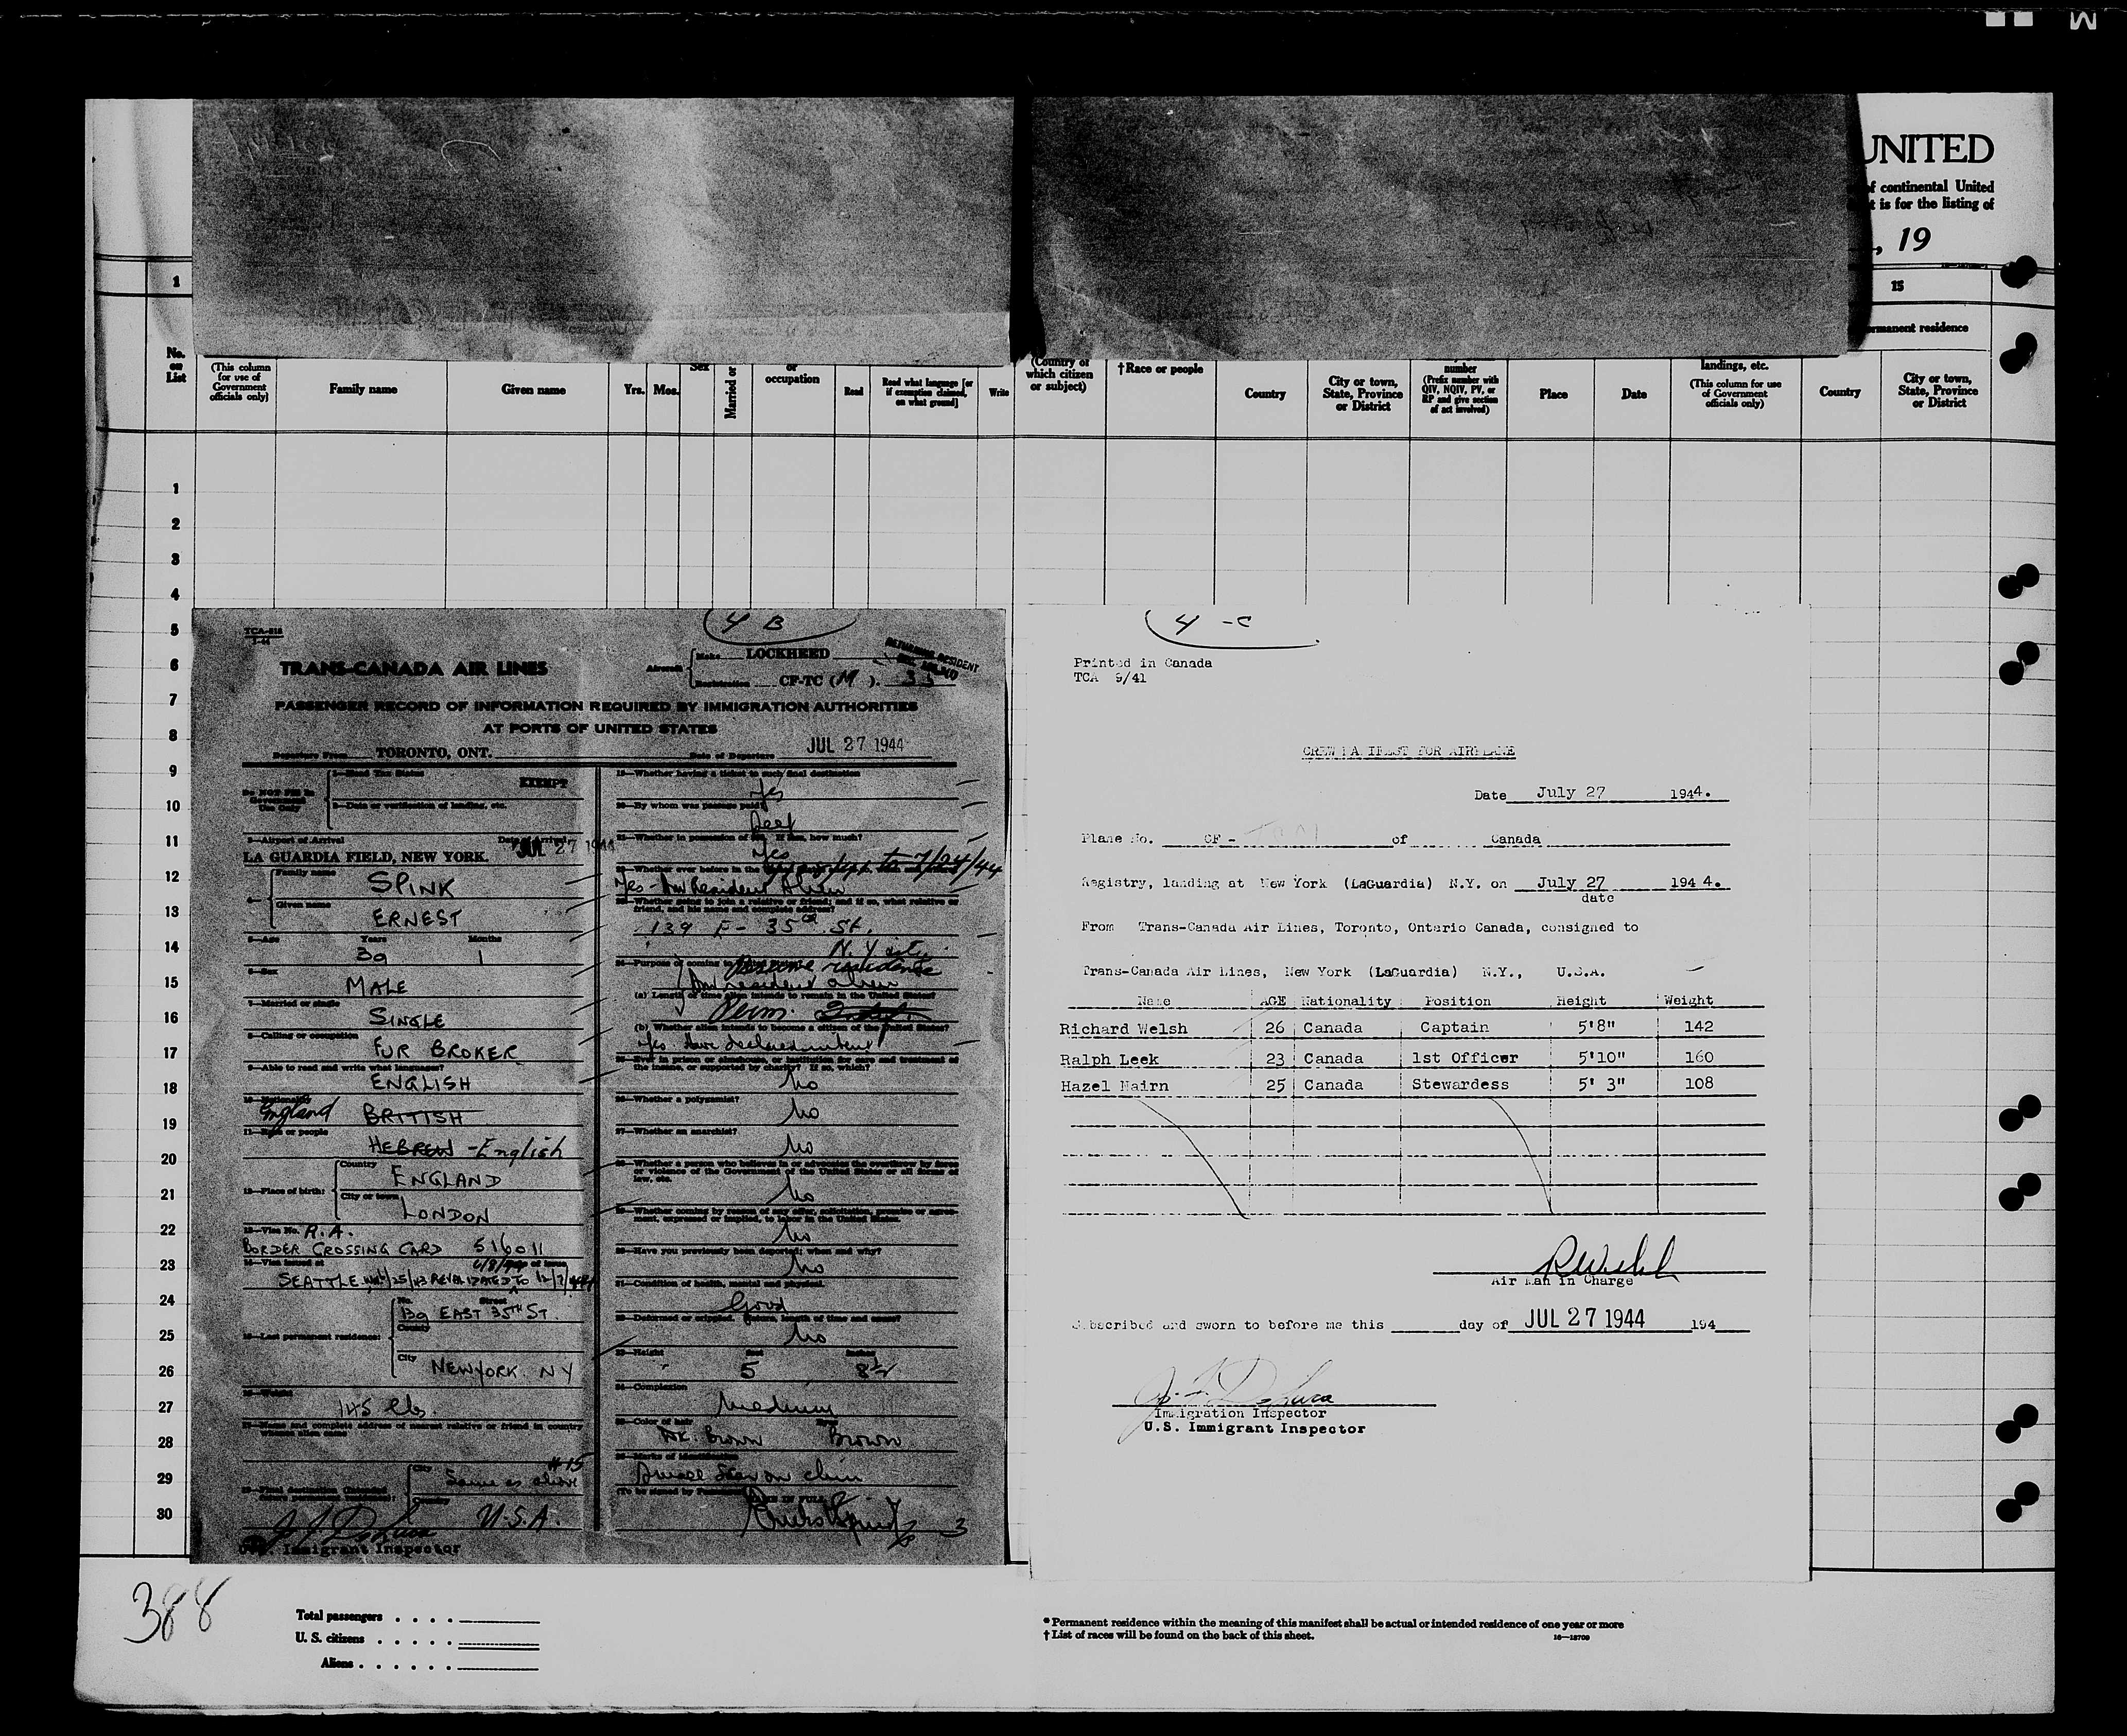 M
UNITED
of continental United
t is for the listing of
, 19
1
15
ermanent residence
No.
on
List
(This column
for use of
Government
officials only)
Family name
Given name
Yrs.
Mos.
Sex
Married or
or
occupation
Read
Read what language [or
if exemption claimed,
on what ground]
Write
(Country of
which citizen
or subject)
†Race or people
Country
City or town,
State, Province
or District
number
(Prefix number with
QIV, NQIV, PV, or
RP and give section
of act involved)
Place
Date
landings, etc.
(This column for use
of Government
officials only)
Country
City or town,
State, Province
or District
1
2
3
4
5
6
7
8
9
10
11
12
13
14
15
16
17
18
19
20
21
22
23
24
25
26
27
28
29
30
4 B
TRANS-CANADA AIR LINES
Aircraft
Make LOCKHEED
Registration CF-TC (M). 33
RETURNING RESIDENT
PASSENGER RECORD OF INFORMATION REQUIRED BY IMMIGRATION AUTHORITIES
AT PORTS OF UNITED STATES
Departure From TORONTO, ONT. Date of Departure JUL 27 1944
Do NOT Fill In
Government
Use Only
1—Head Tax Status EXEMPT
2—Date or verification of landing, etc.
3—Airport of Arrival Date of Arrival
LA GUARDIA FIELD, NEW YORK. JUL 27 1944
Family name
SPINK
Given name
ERNEST
5—Age Years Months
39 1
6—Sex
MALE
7—Married or single
SINGLE
8—Calling or occupation
FUR BROKER
9—Able to read and write what languages?
ENGLISH
10—Nationality
England BRITISH
11—Race or people
HEBREW - English
12—Place of birth:
Country
ENGLAND
City or town
LONDON
13—Visa No. R.A.
BORDER CROSSING CARD 516011
14—Visa issued at
SEATTLE REVALIDATED TO
15—Last permanent residence:
No. Street
139 EAST 35TH ST.
County
City
NEW YORK N Y
16—Weight
145 lbs.
17—Name and complete address of nearest relative or friend in country
whence alien came
#15
City Same as above
Country U.S.A.
J J DeLuca
U.S. Immigrant Inspector
19—Whether having a ticket to such final destination
Yes
20—By whom was passage paid?
Self
21—Whether in possession of $50, if less, how much?
Yes
to 7/24/44
Yes - Am Resident Alien
23—Whether going to join a relative or friend; and if so, what relative or
friend, and his name and complete address?
139 E - 35th St.
N.Y. city
24—Purpose of coming to United States?
Resume residence
Am resident alien
(a) Length of time alien intends to remain in the United States?
Perm.
(b) Whether alien intends to become a citizen of the United States?
Yes have declared intent
25—Ever in prison or almshouse, or institution for care and treatment of
the insane, or supported by charity? If so, which?
No
26—Whether a polygamist?
No
27—Whether an anarchist?
No
28—Whether a person who believes in or advocates the overthrow by force
or violence of the Government of the United States or all forms of
law, etc.
No
29—Whether coming by reason of any offer, solicitation, promise or agree-
ment, expressed or implied, to labor in the United States.
No
30—Have you previously been deported; when and why?
No
31—Condition of health, mental and physical.
Good
32—Deformed or crippled. Nature, length of time and cause?
No
33—Height feet inches
5 8½
34—Complexion
Medium
35—Color of hair Eyes
Dk. Brown Brown
36—Marks of identification
Small Scar on chin
(To be signed by Passenger)
3
4 -C
Printed in Canada
TCA 9/41
CREW MANIFEST FOR AIRPLANE
Date July 27 1944.
Plane No. CF - of Canada
Registry, landing at New York (LaGuardia) N.Y. on July 27 1944.
date
From Trans-Canada Air Lines, Toronto, Ontario Canada, consigned to
Trans-Canada Air Lines, New York (LaGuardia) N.Y., U.S.A.
Name AGE Nationality Position Height Weight
Richard Welsh 26 Canada Captain 5'8" 142
Ralph Leek 23 Canada 1st Officer 5'10" 160
Hazel Nairn 25 Canada Stewardess 5' 3" 108
RWelsh
Air Man in Charge
Subscribed and sworn to before me this day of JUL 27 1944 194
J. J. DeLuca
Immigration Inspector
U.S. Immigrant Inspector
388
Total passengers . . . .
U. S. citizens . . . . .
Aliens . . . . . .
* Permanent residence within the meaning of this manifest shall be actual or intended residence of one year or more
† List of races will be found on the back of this sheet.
16—18709